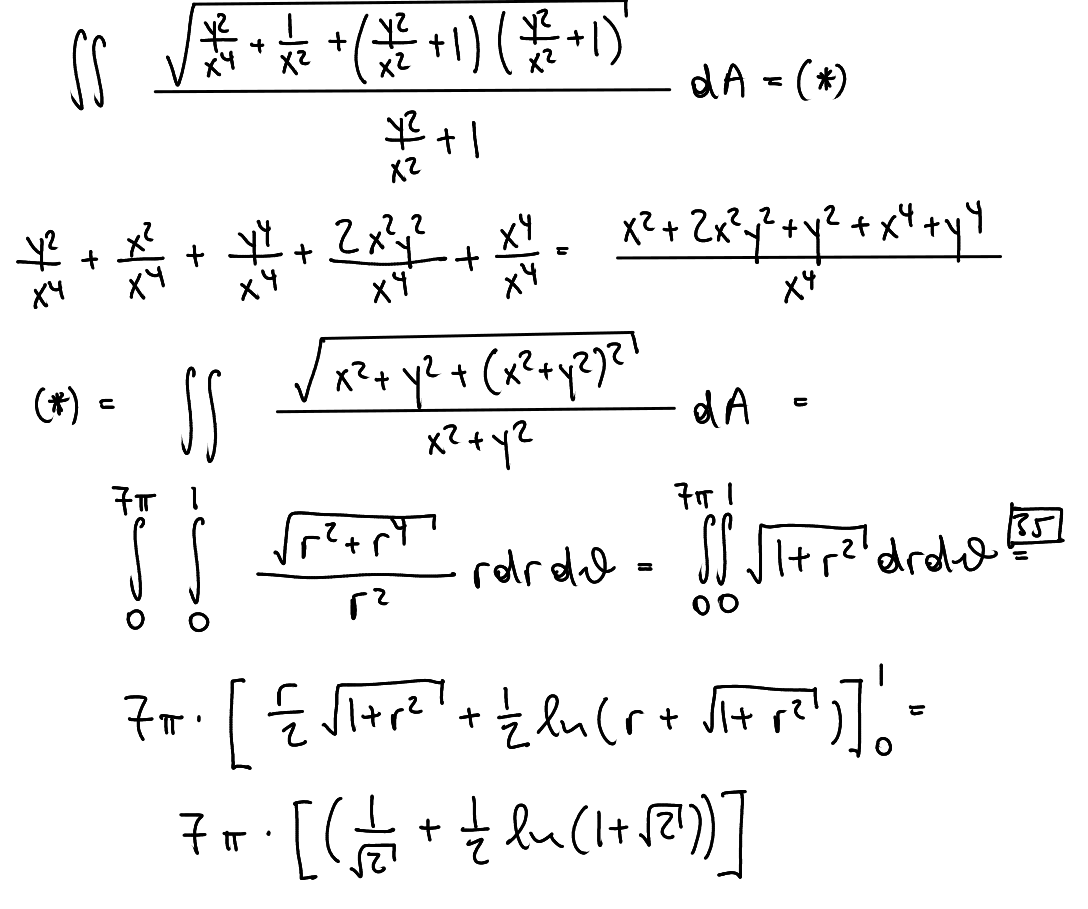 ∬ √(y²/x⁴ + 1/x² + (y²/x² + 1)(y²/x² + 1)) / (y²/x² + 1) dA = (*)
y²/x⁴ + x²/x⁴ + y⁴/x⁴ + 2x²y²/x⁴ + x⁴/x⁴ = (x² + 2x²y² + y² + x⁴ + y⁴)/x⁴
(*) = ∬ √(x² + y² + (x² + y²)²) / (x² + y²) dA =
∫₀^7π ∫₀^1 √(r² + r⁴) / r² r dr dϑ = ∫₀^7π ∫₀^1 √(1 + r²) dr dϑ = [35]
7π · [r/2 √(1 + r²) + 1/2 ln(r + √(1 + r²))]₀^1 =
7π · [(1/√2 + 1/2 ln(1 + √2))]